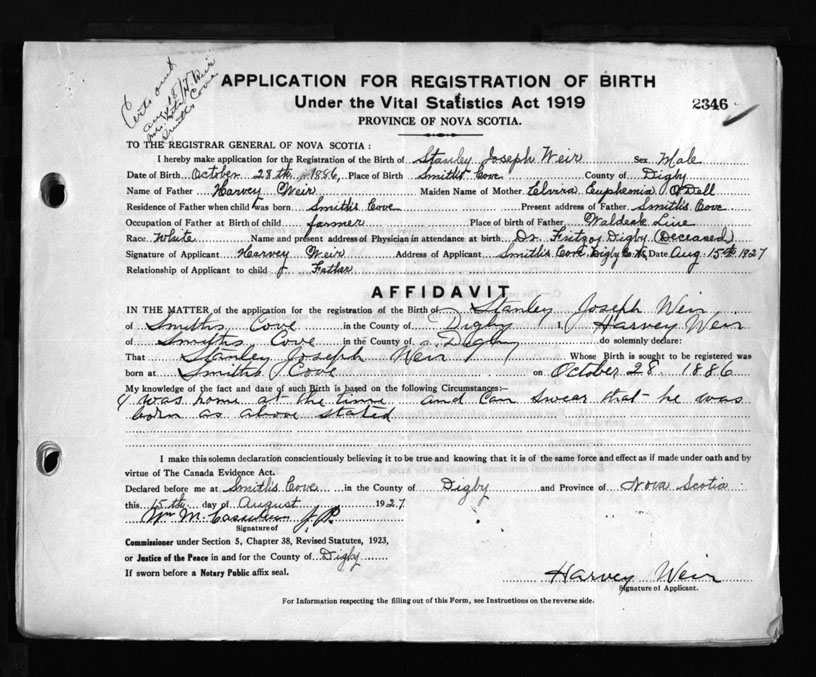 Certs sent
Aug 18/27 Weir
Smiths Cove
APPLICATION FOR REGISTRATION OF BIRTH
Under the Vital Statistics Act 1919
2346
PROVINCE OF NOVA SCOTIA.
TO THE REGISTRAR GENERAL OF NOVA SCOTIA :
I hereby make application for the Registration of the Birth of Stanley Joseph Weir Sex Male
Date of Birth October 28th, 1886, Place of Birth Smith's Cove County of Digby
Name of Father Harvey Weir Maiden Name of Mother Elvira Euphemia O'Dell
Residence of Father when child was born Smith's Cove Present address of Father Smith's Cove
Occupation of Father at Birth of child farmer Place of birth of Father Waldeck Line
Race White Name and present address of Physician in attendance at birth Dr. Fritzoy Digby (Deceased)
Signature of Applicant Harvey Weir Address of Applicant Smith's Cove Digby Co. N.S. Date Aug. 15th 1927
Relationship of Applicant to child Father
AFFIDAVIT
IN THE MATTER of the application for the registration of the Birth of Stanley Joseph Weir
of Smiths Cove in the County of Digby I, Harvey Weir
of Smiths Cove in the County of Digby do solemnly declare:
That Stanley Joseph Weir Whose Birth is sought to be registered was
born at Smiths Cove on October 28. 1886
My knowledge of the fact and date of such Birth is based on the following Circumstances:—
I was home at the time and can swear that he was
born as above stated
I make this solemn declaration conscientiously believing it to be true and knowing that it is of the same force and effect as if made under oath and by
virtue of The Canada Evidence Act.
Declared before me at Smith's Cove in the County of Digby and Province of Nova Scotia
this 15th day of August 1927
Wm M. J.P.
Signature of
Commissioner under Section 5, Chapter 38, Revised Statutes, 1923,
or Justice of the Peace in and for the County of Digby
If sworn before a Notary Public affix seal.
Harvey Weir
Signature of Applicant.
For Information respecting the filling out of this Form, see Instructions on the reverse side.